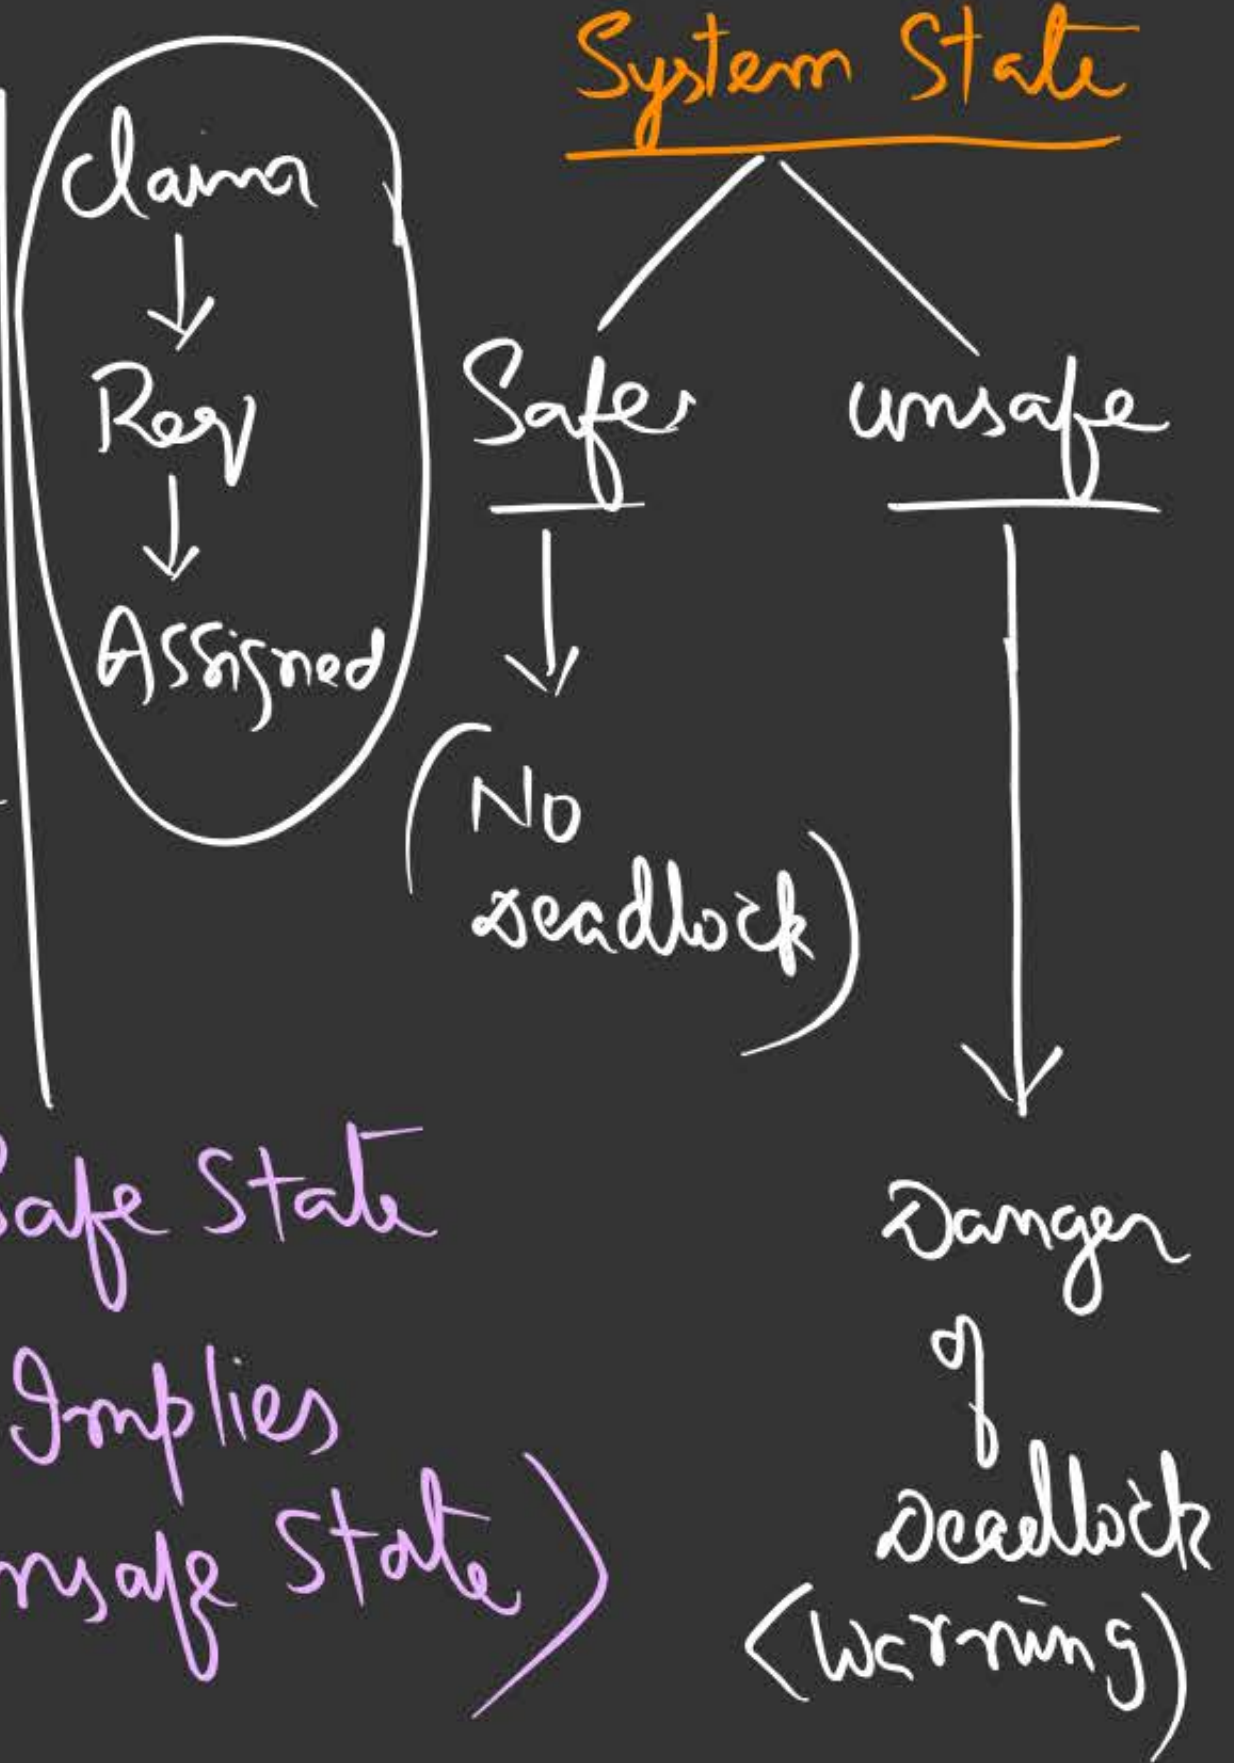 System State
Claim
Req
Assigned
Safe
unsafe
(No
Deadlock)
Danger
of
Deadlock
(Warning)
Safe State
Implies
nsafe State)